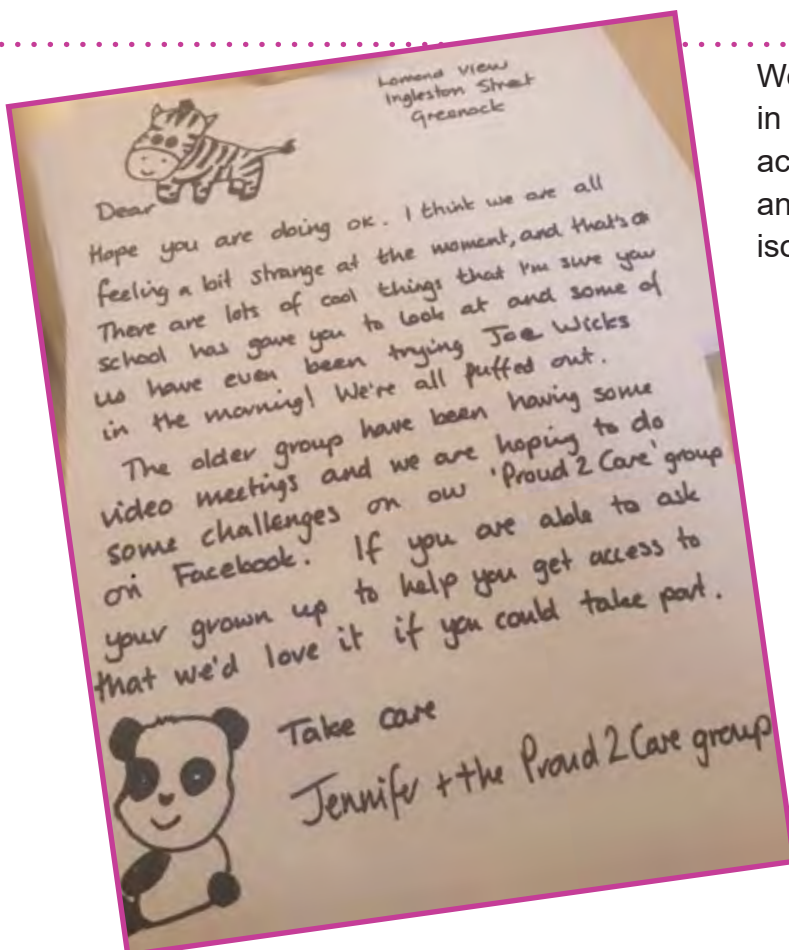 Lomond View
Ingleston Street
Greenock
Dear
Hope you are doing ok. I think we are all
feeling a bit strange at the moment, and that's ok
There are lots of cool things that I'm sure you
school has gave you to look at and some of
us have even been trying Joe Wicks
in the morning! We're all puffed out.
The older group have been having some
video meetings and we are hoping to do
some challenges on our 'Proud 2 Care' group
on Facebook. If you are able to ask
your grown up to help you get access to
that we'd love it if you could take part.
Take care
Jennifer + the Proud 2 Care group
in